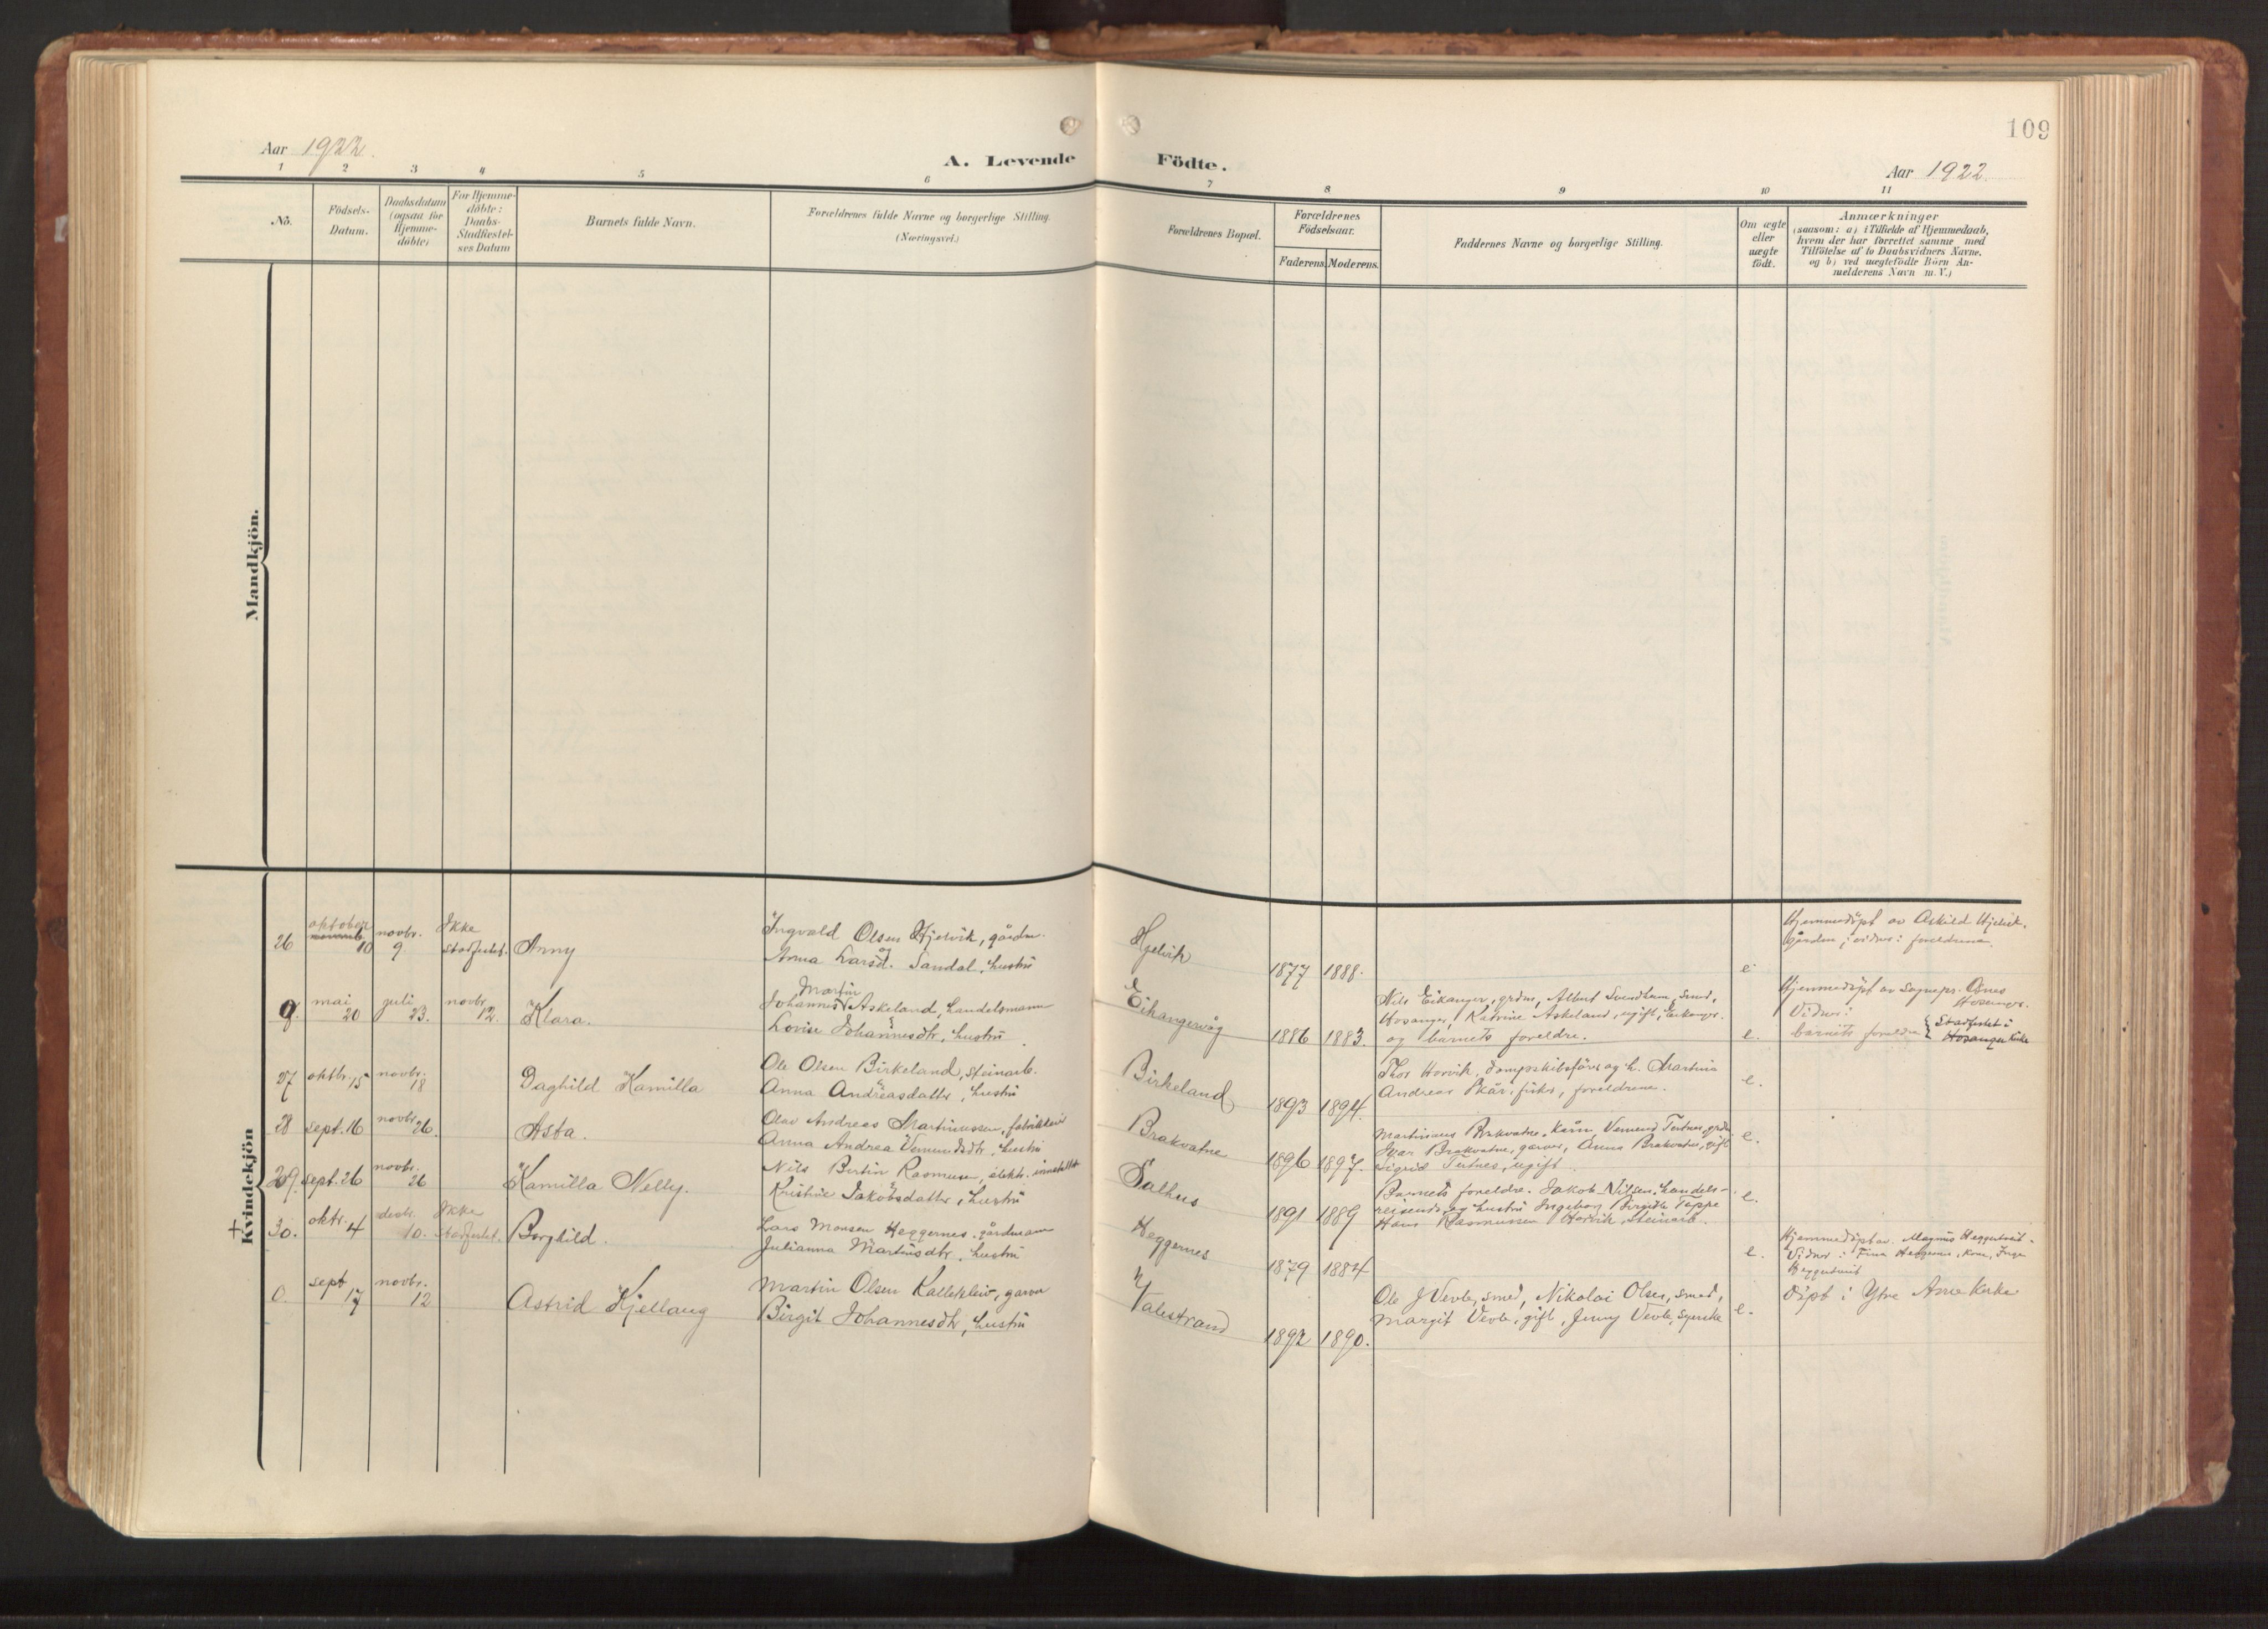 109
Aar 1922.
A. Levende
Födte.
Aar 1922.
1 2 3 4 5 6 7 8 9 10 11
No.
Födsels-
Datum.
Daabsdatum
(ogsaa for
Hjemme-
döbte)
For Hjemme-
döbte:
Daabs-
Stadfæstel-
ses Datum
Barnets fulde Navn.
Forældrenes fulde Navne og borgerlige Stilling.
(Næringsvei.)
Forældrenes Bopæl.
Forældrenes
Födselsaar.
Faderens. Moderens.
Faddernes Navne og borgerlige Stilling.
Om ægte
eller
uægte
födt.
Anmærkninger
(saasom: a) i Tilfælde af Hjemmedaab,
hvem der har forrettet samme med
Tilföielse af to Daabsvidners Navne.
og b) ved uægtefödte Börn An-
melderens Navn m. V.)
Mandkjön.
Kvindekjön
26
oktober
10
novbr.
9
Ikke
stadfestet.
Anny
Ingvald Olsen Hjelvik, gårdm.
og
Anna Larsd. Sandal, hustru
Hjelvik
1877 1888.
e
Hjemmedöpt av Askild Hjelvik,
vidner: foreldrene.
9.
mai
20
juli
23.
novbr.
12.
Klara.
Martin
Johannes Askeland, handelsmann
Lovise Johannesdtr, hustru
Eikangervåg
1886 1883.
Nils Eikanger, grdm, Albert Svendheim, smed,
Hosanger, Katrine Askeland, ugift, Eikanger.
og barnets foreldre.
e.
Hjemmedöpt av Sognepr. Osnes
Hosanger.
Vidner:
barnets foreldre
Stadfestet i
Hosanger Kirke
27
oktbr.
15
novbr.
18
Daghild Kamilla
Ole Olsen Birkeland, steinarb.
Anna Andreasdatter, hustru
Birkeland
1893 1894.
Thor Horvik, dampskibsförer og h. Martina
Andreas Skår, fisker, foreldrene.
e.
28
sept. 16
novbr.
26.
Asta.
Olav Andreas Martinussen, fabrikarb
Anna Andrea Vemundsdtr, hustru
Brakvatne
1896 1897.
Martinus Brakvatne, Vemund Tutnes, grdm
Ivar Brakvatne, garver, Anna Brakvatne, gift
Sigrid Tutnes, ugift.
e.
29.
sept. 26
novbr.
26
Kamilla Nelly.
Nils Bertin Rasmussen, elektr. innstallatör
Kristine Jakobsdatter, hustru
Salhus
1891 1889
Barnets foreldre. Jakob Nilsen, handels-
reisende og hustru Ingeborg Birgitte Toppe
Hans Rasmussen Horvik, steinarb.
e.
+
30.
oktr.
4
desbr.
10.
Ikke
stadfestet.
Borghild.
Lars Monsen Heggernes, gårdmann
Julianna Martinsdtr, hustru
Heggernes
1879 1884
e.
Hjemmedöpt av Magnus Heggertveit.
Vidner: Fina Heggernes, kone, Inga
Heggertveit
0.
sept
17
novbr.
12
Astrid Kjellaug
Martin Olsen Kallekleiv, garver
Birgit Johannesdtr, hustru
Valestrand
1892 1890.
Ole J Vevle, smed, Nikolai Olsen, smed,
Margit Vevle, gift, Jenny Vevle, syerske
e.
Döpt i Ytre Arne Kirke